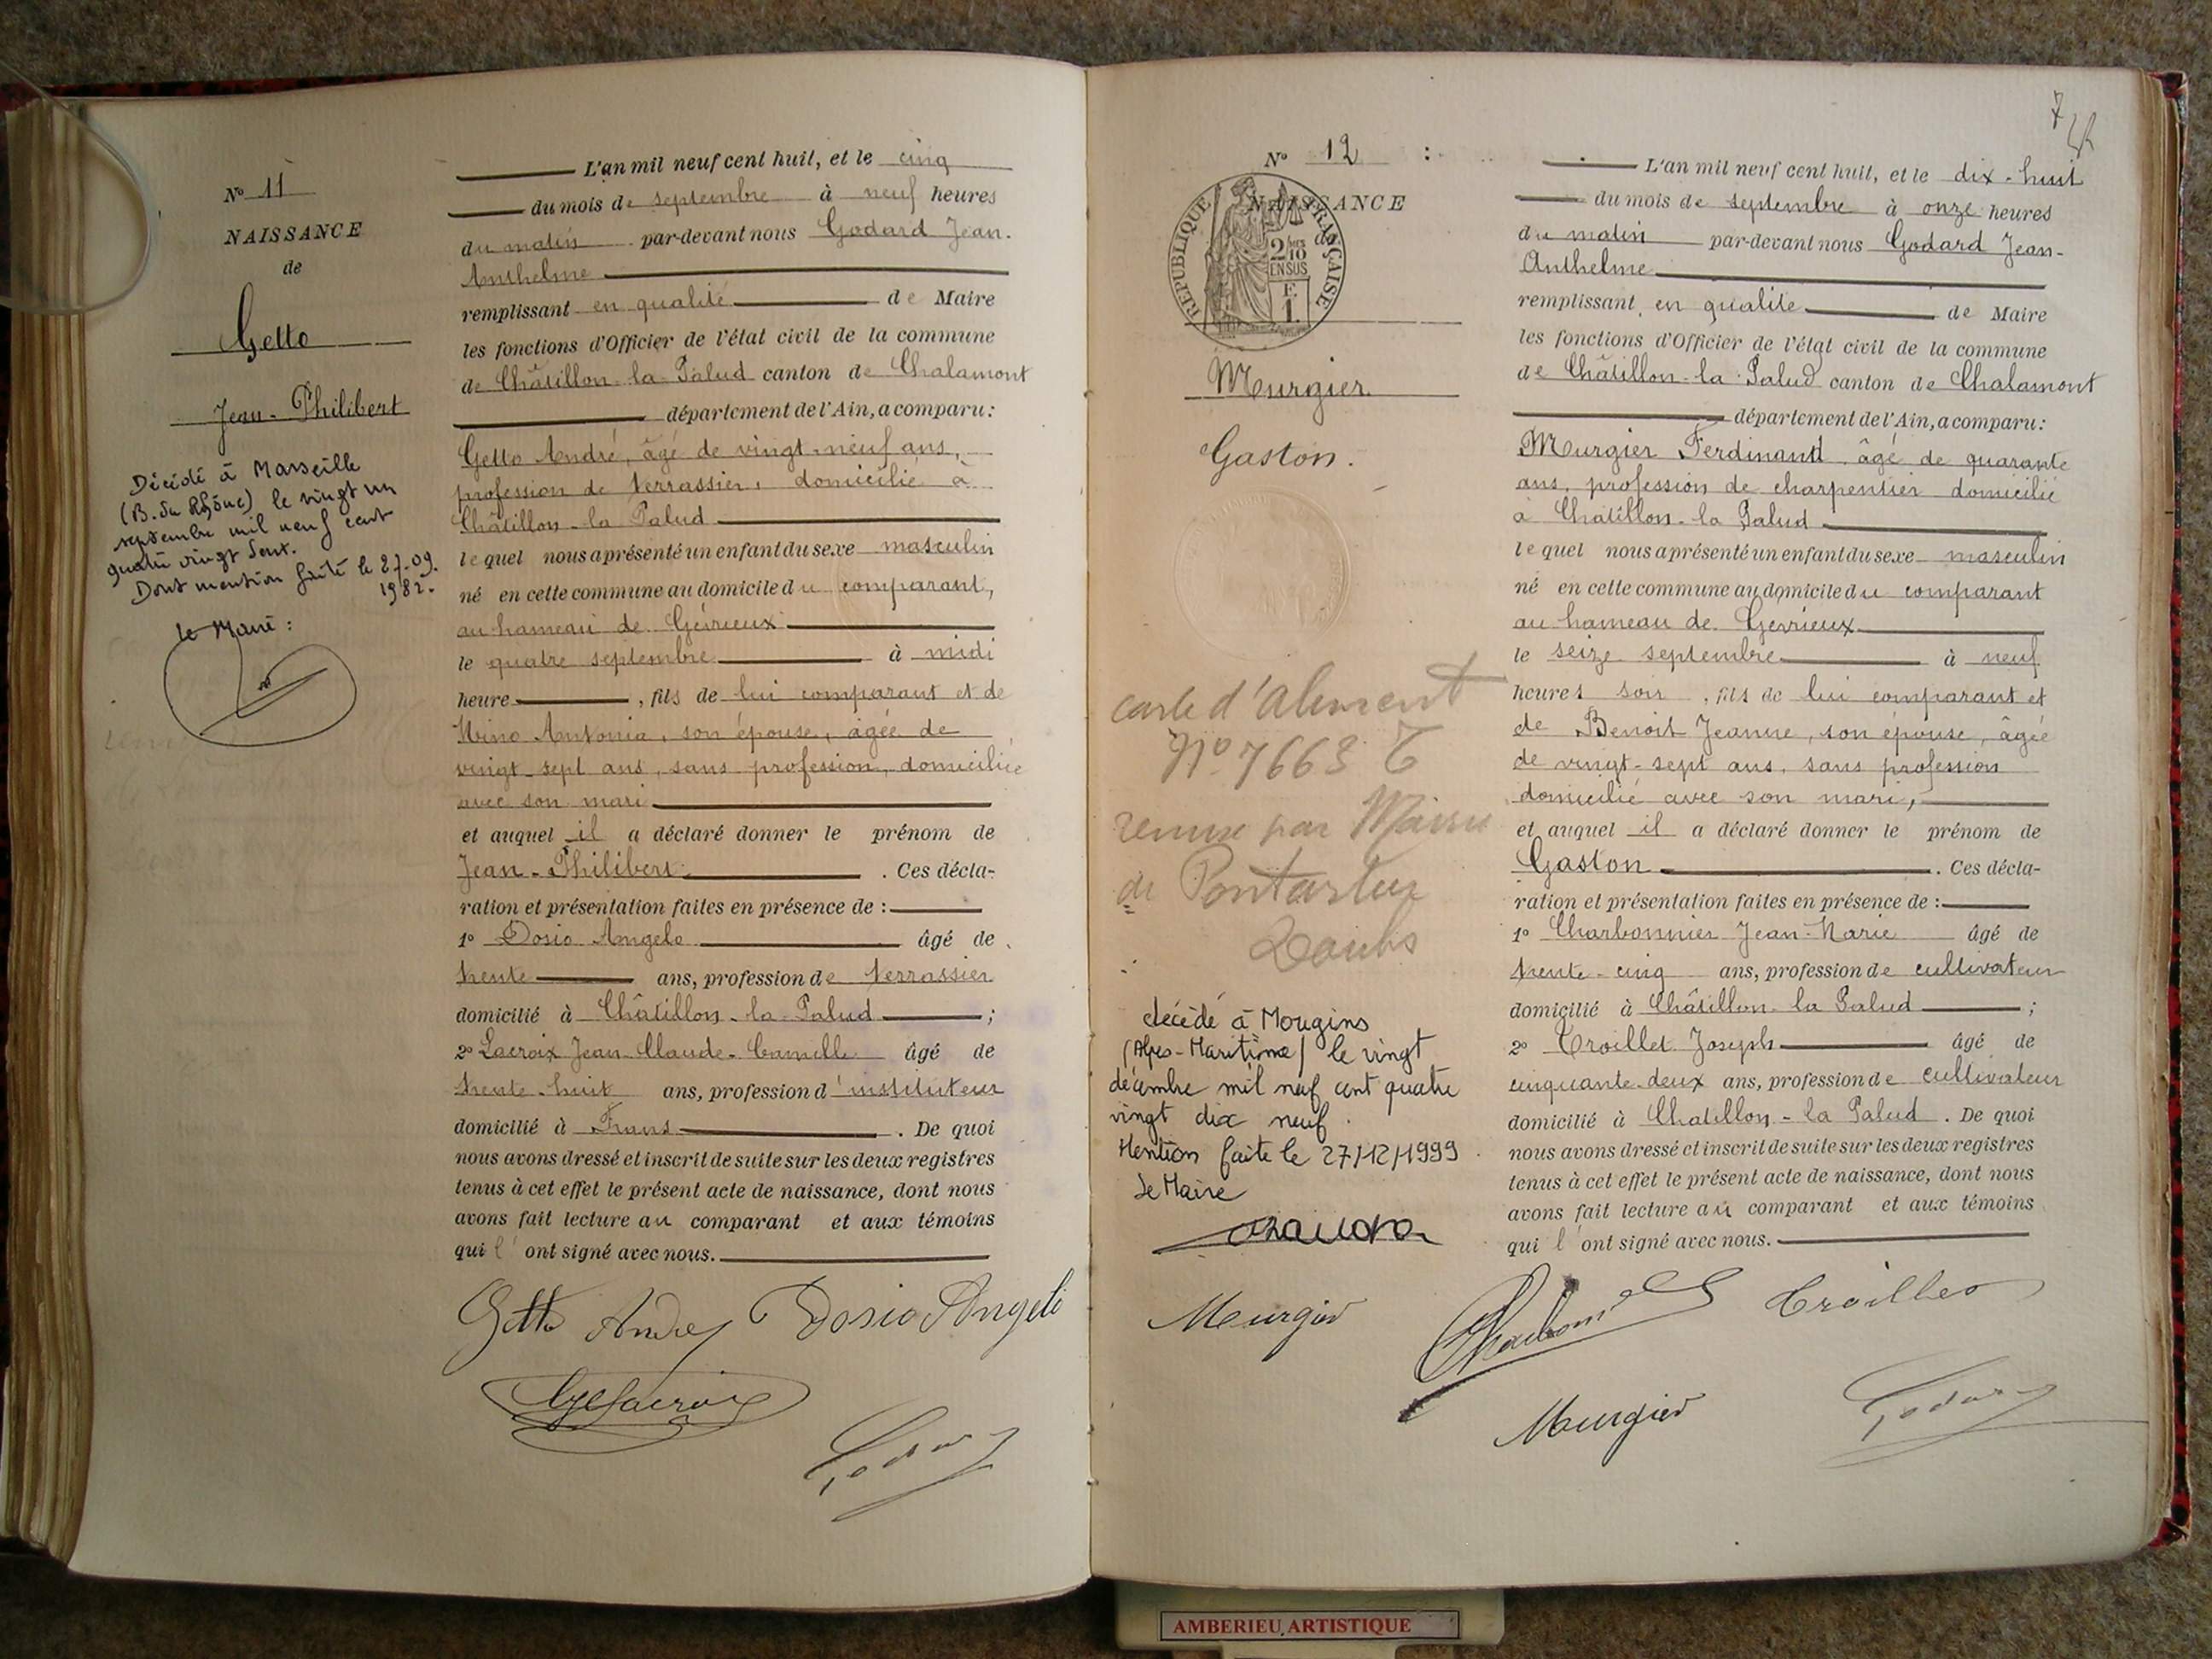 Nº 11
NAISSANCE
de
Getto
Jean-Philibert
Décédé à Marseille
(B. du Rhône) le vingt un
septembre mil neuf cent
quatre vingt deux.
Dont mention faite le 27.09.
1982.
Le Maire :
L'an mil neuf cent huit, et le cinq
du mois de septembre à neuf heures
du matin par-devant nous Godard Jean-
Anthelme
remplissant en qualité de Maire
les fonctions d'Officier de l'état civil de la commune
de Châtillon-la-Palud canton de Chalamont
département de l'Ain, a comparu :
Getto André, âgé de vingt-neuf ans,
profession de terrassier, domicilié à
Châtillon-la-Palud
lequel nous a présenté un enfant du sexe masculin
né en cette commune au domicile du comparant,
au hameau de Gévrieux
le quatre septembre à midi
heure , fils de lui comparant et de
Antonia, son épouse, âgée de
vingt-sept ans, sans profession, domiciliée
avec son mari
et auquel il a déclaré donner le prénom de
Jean-Philibert . Ces décla-
ration et présentation faites en présence de :
1º Dosio Angelo âgé de
trente ans, profession de terrassier
domicilié à Châtillon-la-Palud ;
2º Lacroix Jean-Claude-Camille âgé de
trente-huit ans, profession d'instituteur
domicilié à Frans . De quoi
nous avons dressé et inscrit de suite sur les deux registres
tenus à cet effet le présent acte de naissance, dont nous
avons fait lecture au comparant et aux témoins
qui l'ont signé avec nous.
Getto Andrey Dosio Angelo
Lacroix
Godard
7
Nº 12 :
NAISSANCE
de
RÉPUBLIQUE FRANÇAISE
2/10
EN SUS
F.
1.
Murgier
Gaston.
carte d'aliment
Nº 7663 T
remise par Mairie
de Pontarlier
Doubs
décédé à Mougins
(Alpes-Maritimes) le vingt
décembre mil neuf cent quatre
vingt dix neuf.
Mention faite le 27/12/1999
Le Maire
L'an mil neuf cent huit, et le dix-huit
du mois de septembre à onze heures
du matin par-devant nous Godard Jean-
Anthelme
remplissant en qualité de Maire
les fonctions d'Officier de l'état civil de la commune
de Châtillon-la-Palud canton de Chalamont
département de l'Ain, a comparu :
Murgier Ferdinand âgé de quarante
ans, profession de charpentier domicilié
à Chatillon-la Palud
lequel nous a présenté un enfant du sexe masculin
né en cette commune au domicile du comparant
au hameau de Gévrieux
le seize septembre à neuf
heures soir , fils de lui comparant et
de Benoit Jeanne, son épouse, âgée
de vingt-sept ans, sans profession
domicilié avec son mari,
et auquel il a déclaré donner le prénom de
Gaston . Ces décla-
ration et présentation faites en présence de :
1º Charbonnier Jean-Marie âgé de
trente-cinq ans, profession de cultivateur
domicilié à Châtillon-la Palud ;
2º Troillet Joseph âgé de
cinquante-deux ans, profession de cultivateur
domicilié à Chatillon-la Palud . De quoi
nous avons dressé et inscrit de suite sur les deux registres
tenus à cet effet le présent acte de naissance, dont nous
avons fait lecture au comparant et aux témoins
qui l'ont signé avec nous.
Murgier Troillet
Murgier Godard
AMBERIEU ARTISTIQUE